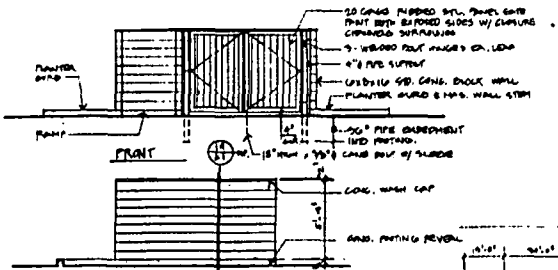 20 GAGE RIBBED STL. PANEL GATE
PAINT BOTH EXPOSED SIDES W/ CLOSURE
CHANNEL SURROUND
3 - WELDED BOLT HINGES EA. LEAF
4" ⌀ PIPE SUPPORT
6x8x16 STD. CONC. BLOCK WALL
PLANTER CURB & MAS. WALL STEM
PLANTER
CURB
RAMP
36" PIPE EMBEDMENT
INTO FOOTING.
FRONT
18" HIGH, CANE BOLT W/ SLEEVE
CONC. WASH CAP
CONC. FOOTING REVEAL